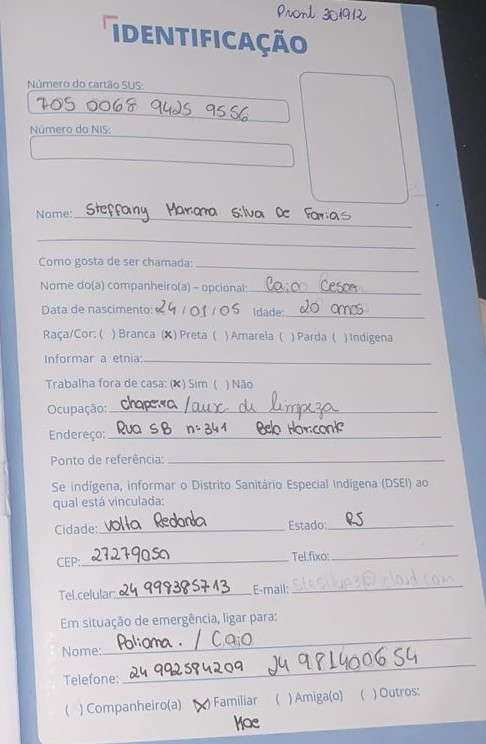 Pront. 301912
IDENTIFICAÇÃO
Número do cartão SUS:
705 0068 9425 9556
Número do NIS:
Nome: Steffany Mariana Silva De Farias
Como gosta de ser chamada:
Nome do(a) companheiro(a) – opcional: Caio Cesar
Data de nascimento: 24/01/05 Idade: 20 anos
Raça/Cor: ( ) Branca (x) Preta ( ) Amarela ( ) Parda ( ) Indígena
Informar a etnia:
Trabalha fora de casa: (x) Sim ( ) Não
Ocupação: chapeira /aux. de limpeza
Endereço: Rua SB n: 341 Belo Horizonte
Ponto de referência:
Se indígena, informar o Distrito Sanitário Especial Indígena (DSEI) ao
qual está vinculada:
Cidade: Volta Redonda Estado: RS
CEP: 27279050 Tel.fixo:
Tel.celular: 24 998385713 E-mail:
Em situação de emergência, ligar para:
Nome: Poliana. / Caio
Telefone: 24 992584209 24 981400654
( ) Companheiro(a) (x) Familiar ( ) Amiga(o) ( ) Outros:
Mae